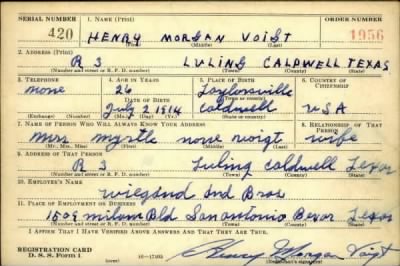 SERIAL NUMBER 1. NAME (Print) ORDER NUMBER
420 HENRY MORGAN VOIGT 1956
(First) (Middle) (Last)
2. ADDRESS (Print)
R 3 LULING CALDWELL TEXAS
(Number and street or R. F. D. number) (Town) (County) (State)
3. TELEPHONE 4. AGE IN YEARS 5. PLACE OF BIRTH 6. COUNTRY OF CITIZENSHIP
none 26 Taylorsville
DATE OF BIRTH (Town or county)
July 2 1914 Caldwell USA
(Exchange) (Number) (Mo.) (Day) (Yr.) (State or country)
7. NAME OF PERSON WHO WILL ALWAYS KNOW YOUR ADDRESS 8. RELATIONSHIP OF THAT PERSON
Mrs myrtle none voigt wife
(Mr., Mrs., Miss) (First) (Middle) (Last)
9. ADDRESS OF THAT PERSON
R 3 Luling Caldwell Texas
(Number and street or R. F. D. number) (Town) (County) (State)
10. EMPLOYER'S NAME
and Bros
11. PLACE OF EMPLOYMENT OR BUSINESS
milam Bld San antonio Bexar Texas
(Number and street or R. F. D. number) (Town) (County) (State)
I AFFIRM THAT I HAVE VERIFIED ABOVE ANSWERS AND THAT THEY ARE TRUE.
REGISTRATION CARD
D. S. S. Form 1 16—17105 Henry Morgan Voigt
(over) (Registrant's signature)